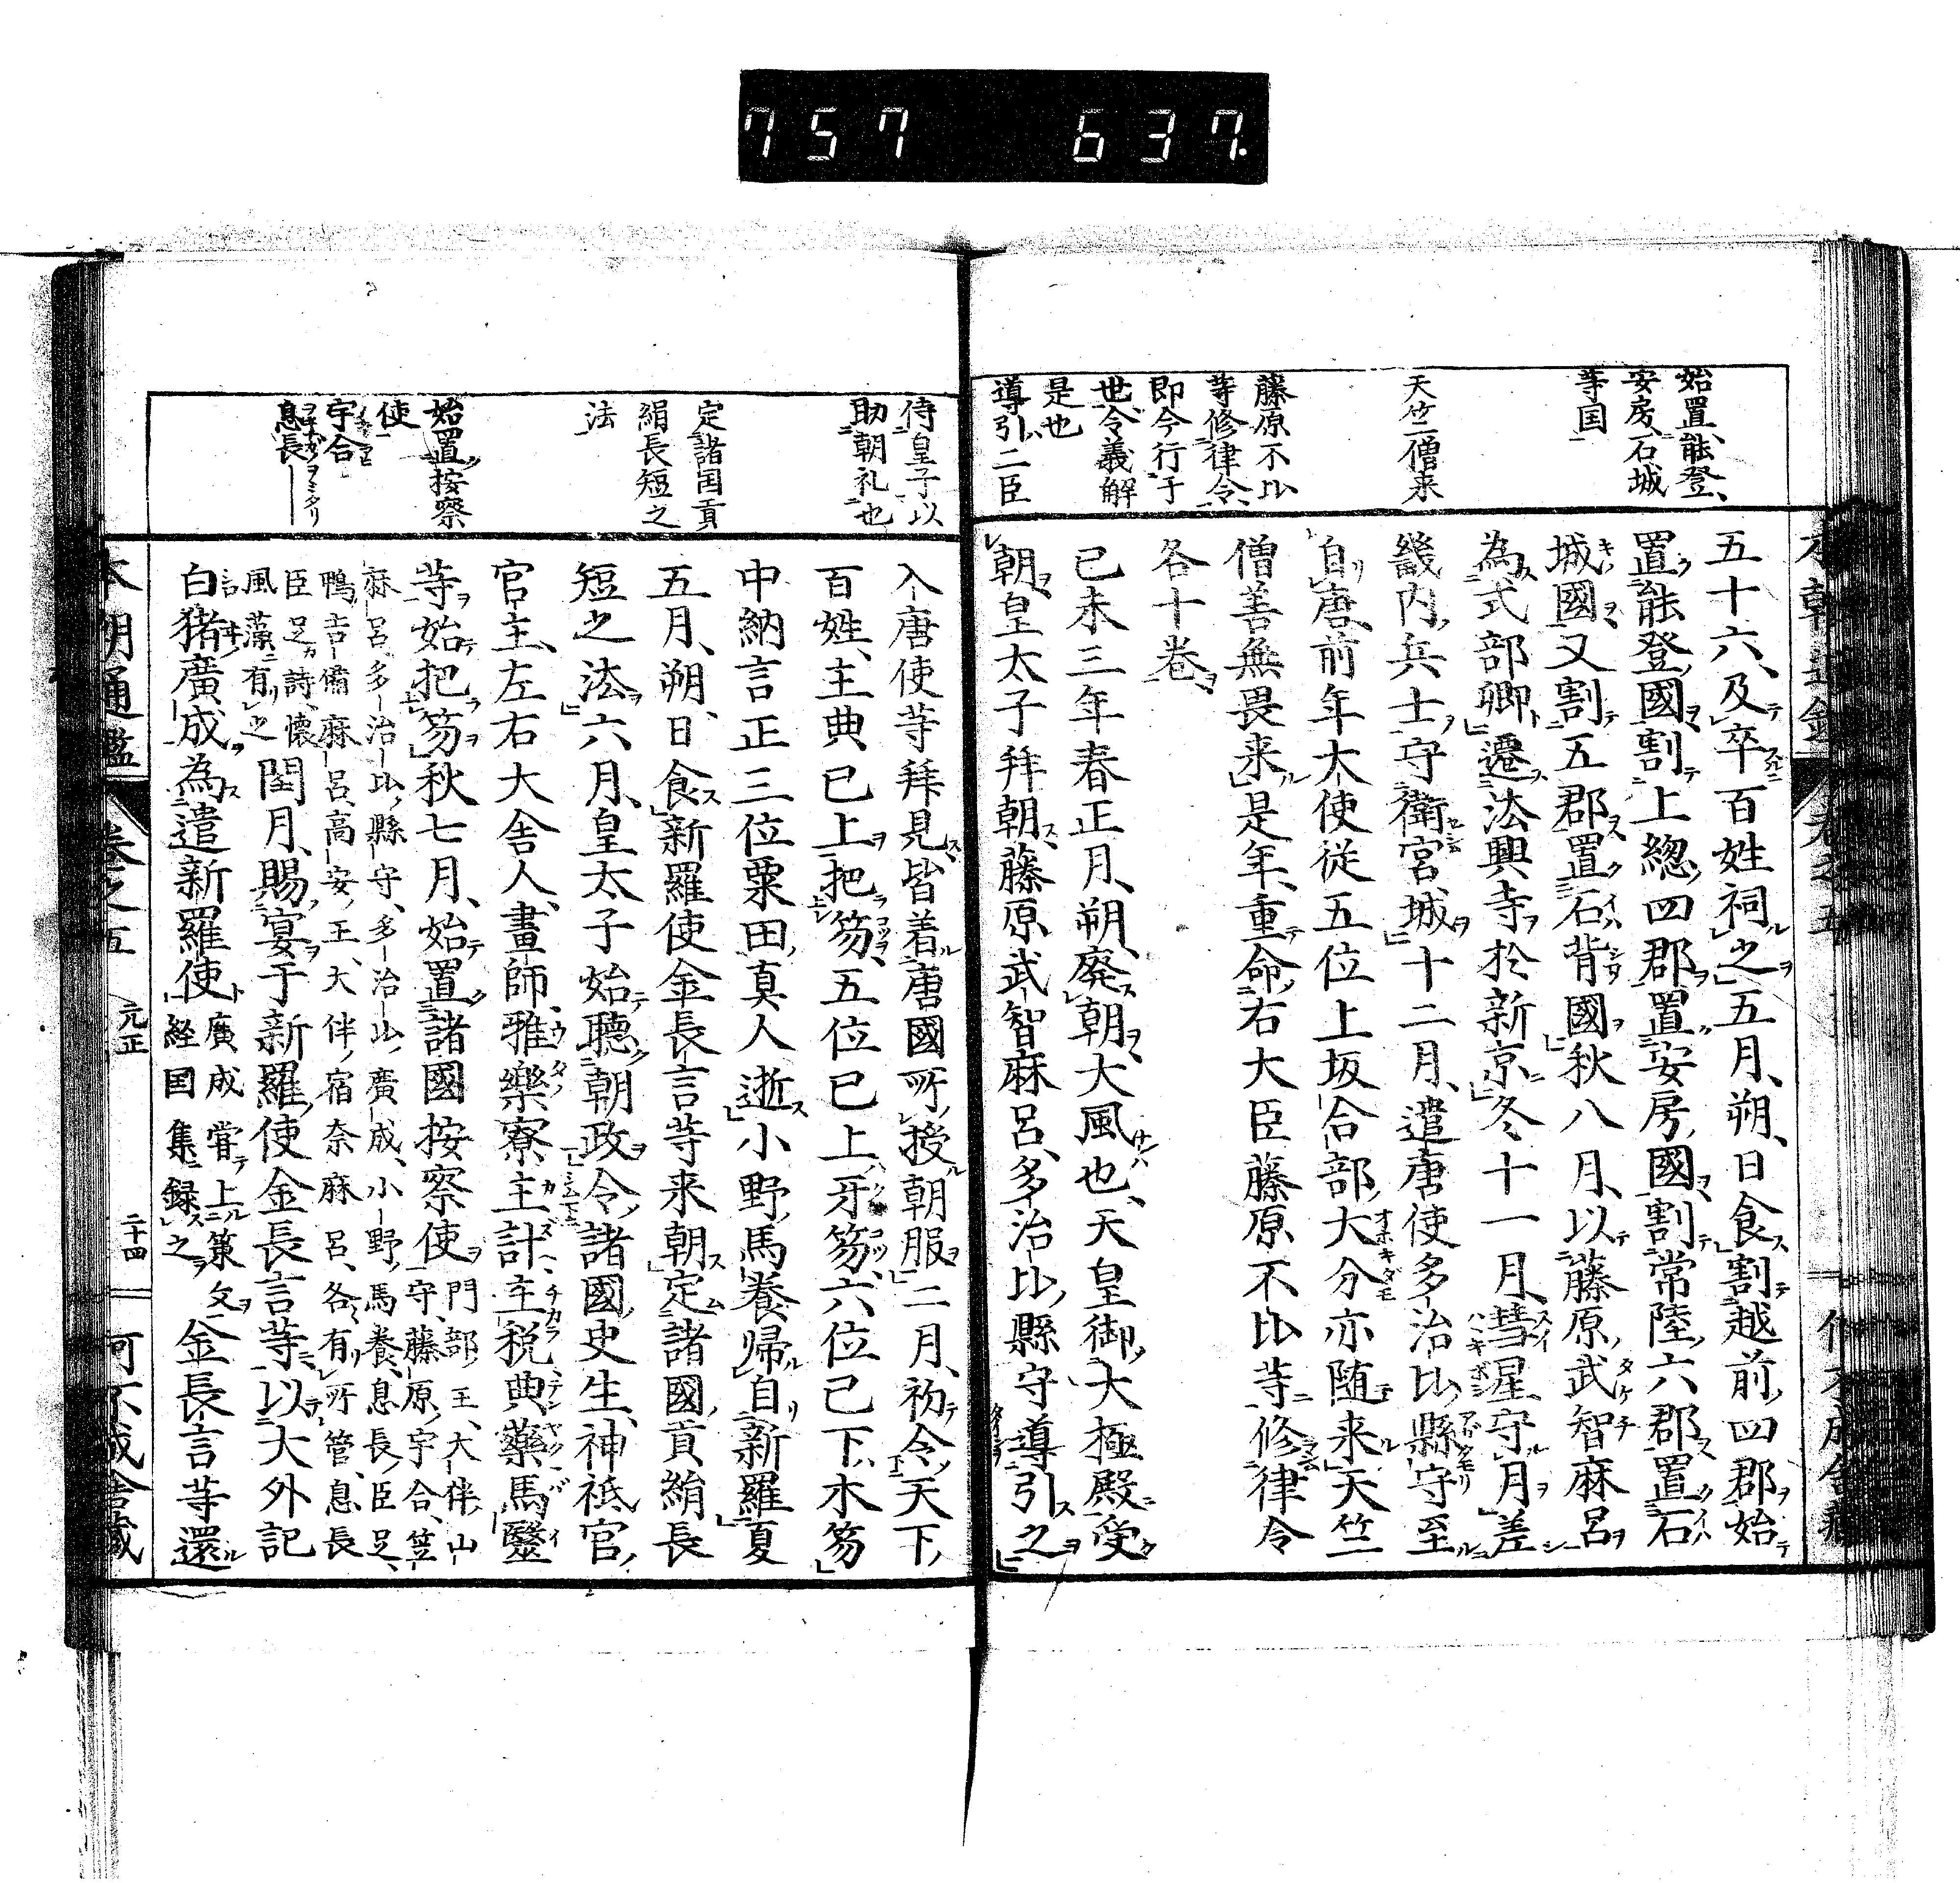 757 637.
始置能登、
安房、石城
等国
天竺僧来
藤原不比
等修律令、
即今行于
世、令義解
是也
導引二臣
五十六、及卒百姓祠之五月、朔、日食割越前四郡始
置能登國割上總四郡置安房國割常陸六郡置石
城國又割五郡置石背國秋八月、以藤原武智麻呂
為式部卿遷法興寺於新京冬十一月、彗星守月差
畿内兵士守衛宮城十二月、遣唐使多治比縣守至
自唐前年大使従五位上坂合部大分亦随来天竺
僧善無畏来是年、重命右大臣藤原不比等修律令
各十巻
己未三年春正月、朔、廃朝大風也、天皇御大極殿受
朝皇太子拝朝、藤原武智麻呂、多治比縣守導引之
侍皇子以
助朝礼也
定諸国貢
絹長短之
法
始置按察
使
宇合
息長
入唐使等拜見皆着唐國所授朝服二月、初令天下
百姓、主典已上把笏、五位已上牙笏、六位已下木笏
中納言正三位粟田真人逝小野馬養歸自新羅夏
五月、朔、日食新羅使金長言等来朝定諸國貢絹長
短之法六月、皇太子始聽朝政令諸國史生、神祇官
官主、左右大舎人、畫師、雅樂寮、主計、主税、典藥、馬醫
等始把笏秋七月、始置諸國按察使門部王、大伴山
守、藤原宇合、笠
麻呂、多治比縣守、多治比廣成、小野馬養、息長臣足、
鴨吉備麻呂、高安王、大伴宿奈麻呂、各有所管、息長
臣足詩、懐
風藻有之閏月、賜宴于新羅使金長言等以大外記
白猪廣成為遣新羅使廣成嘗上策文
経国集録之金長言等還
本朝通鑑 巻之五 元正 二十四